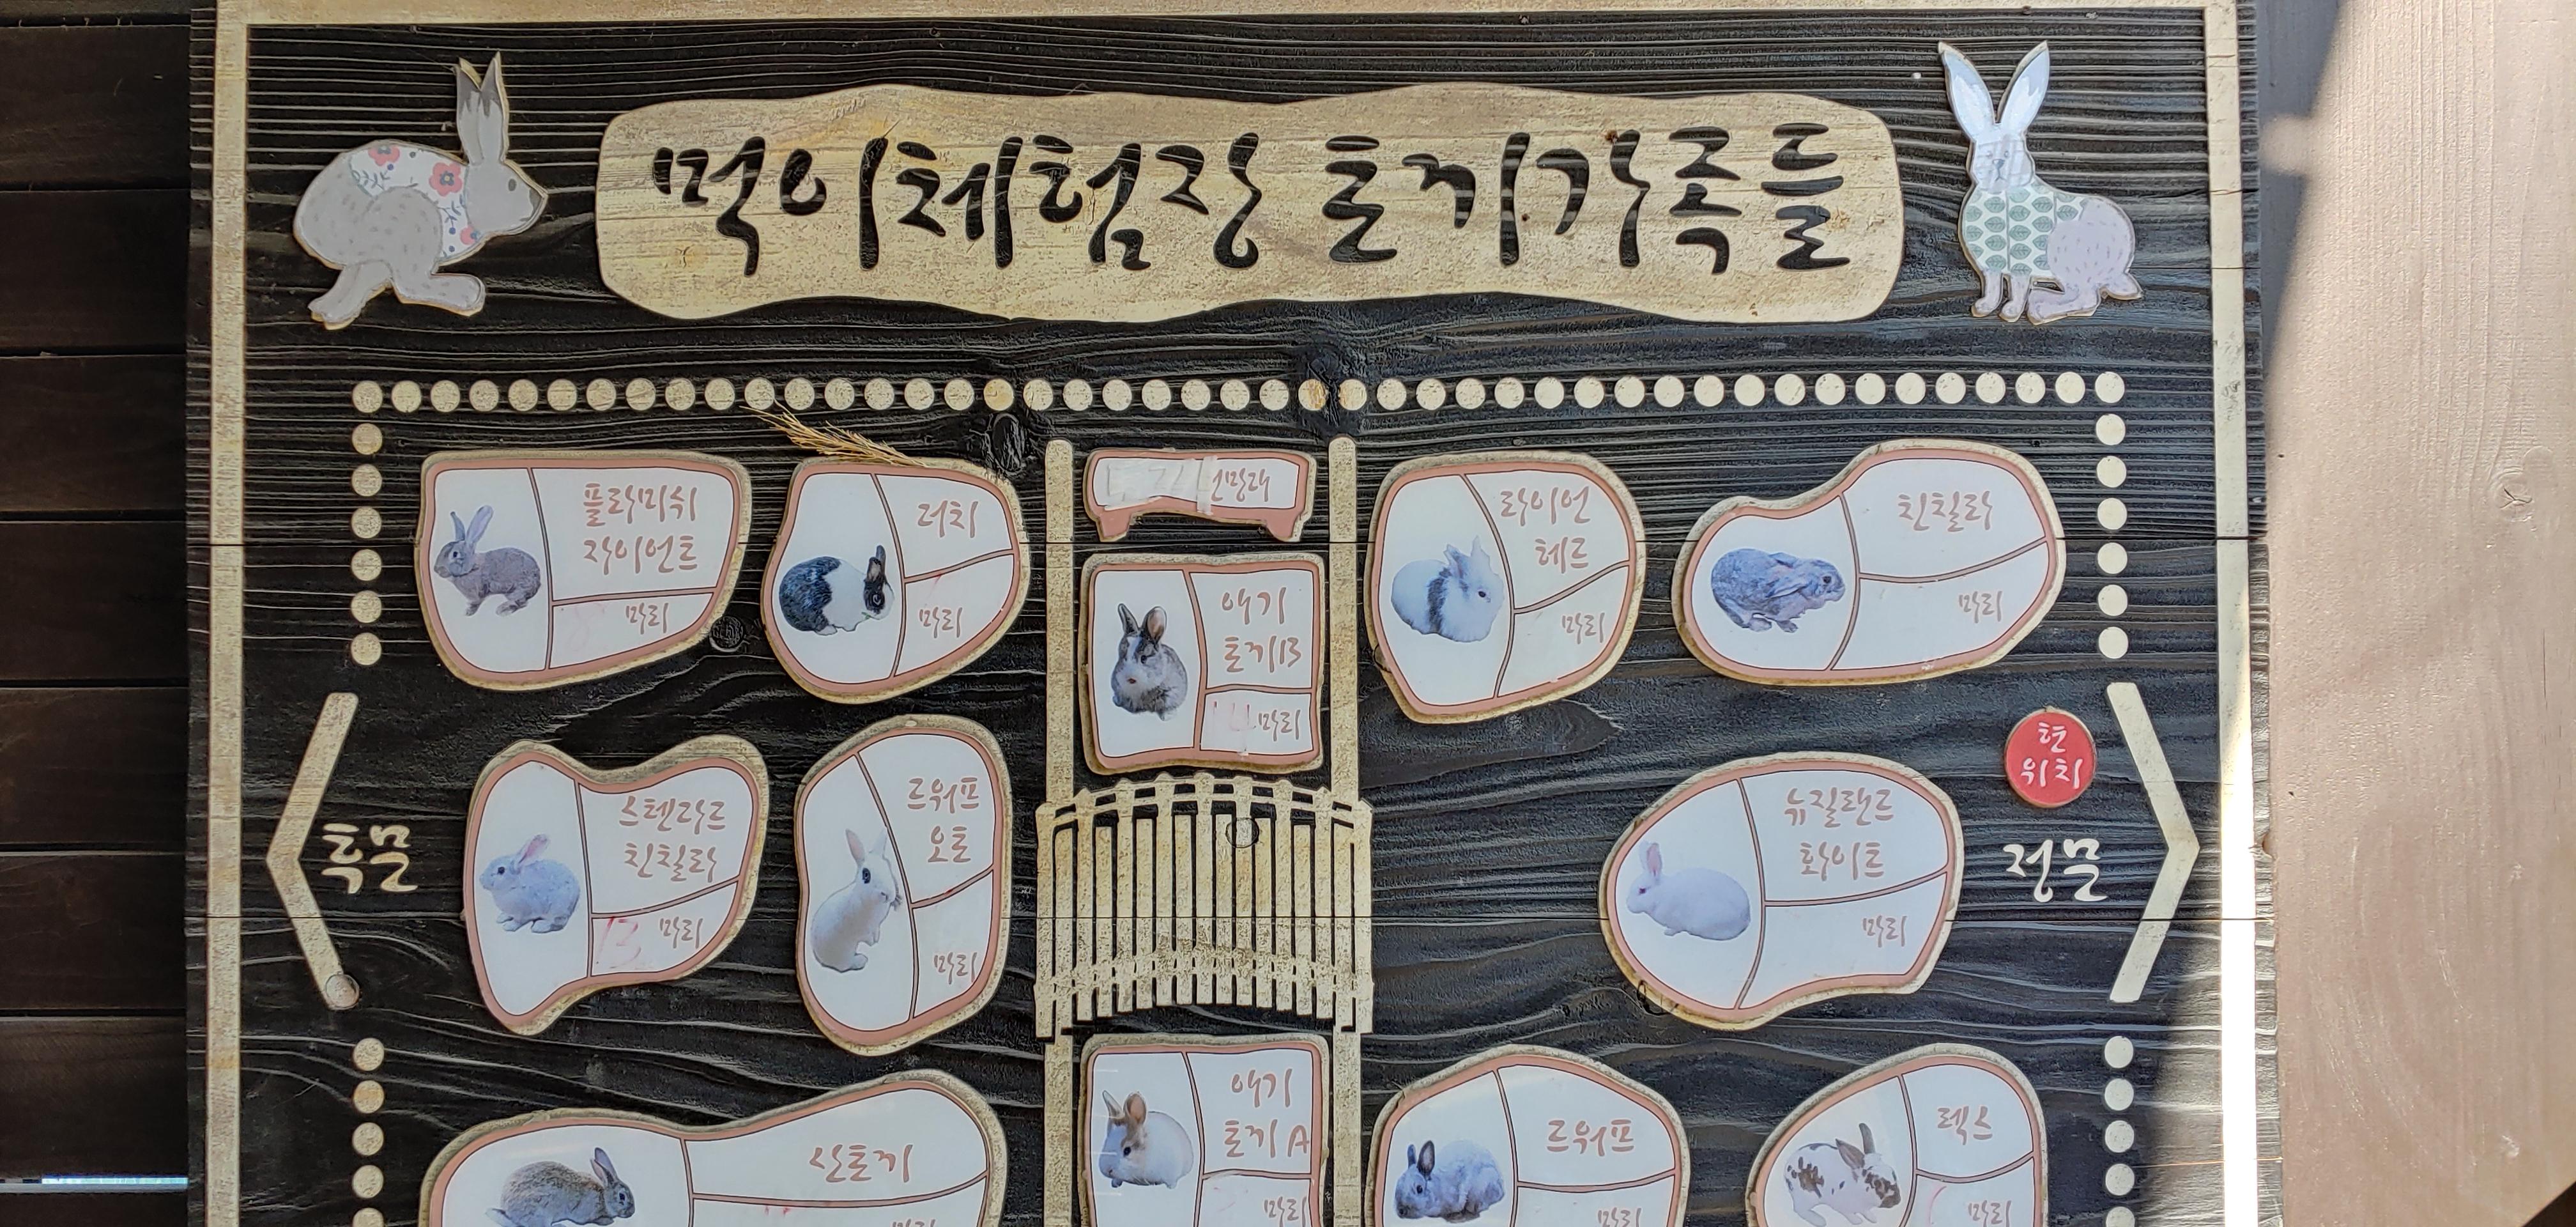 먹이체험장 토끼가족들
플라미쉬
자이언트
마리
더치
마리
전망대
애기
토끼B
마리
라이언
헤드
마리
친칠라
마리
현
위치
스텐다드
친칠라
13 마리
드워프
오토
마리
뉴질랜드
화이트
마리
쪽문
정문
산토끼
마리
애기
토끼A
마리
드워프
마리
렉스
마리